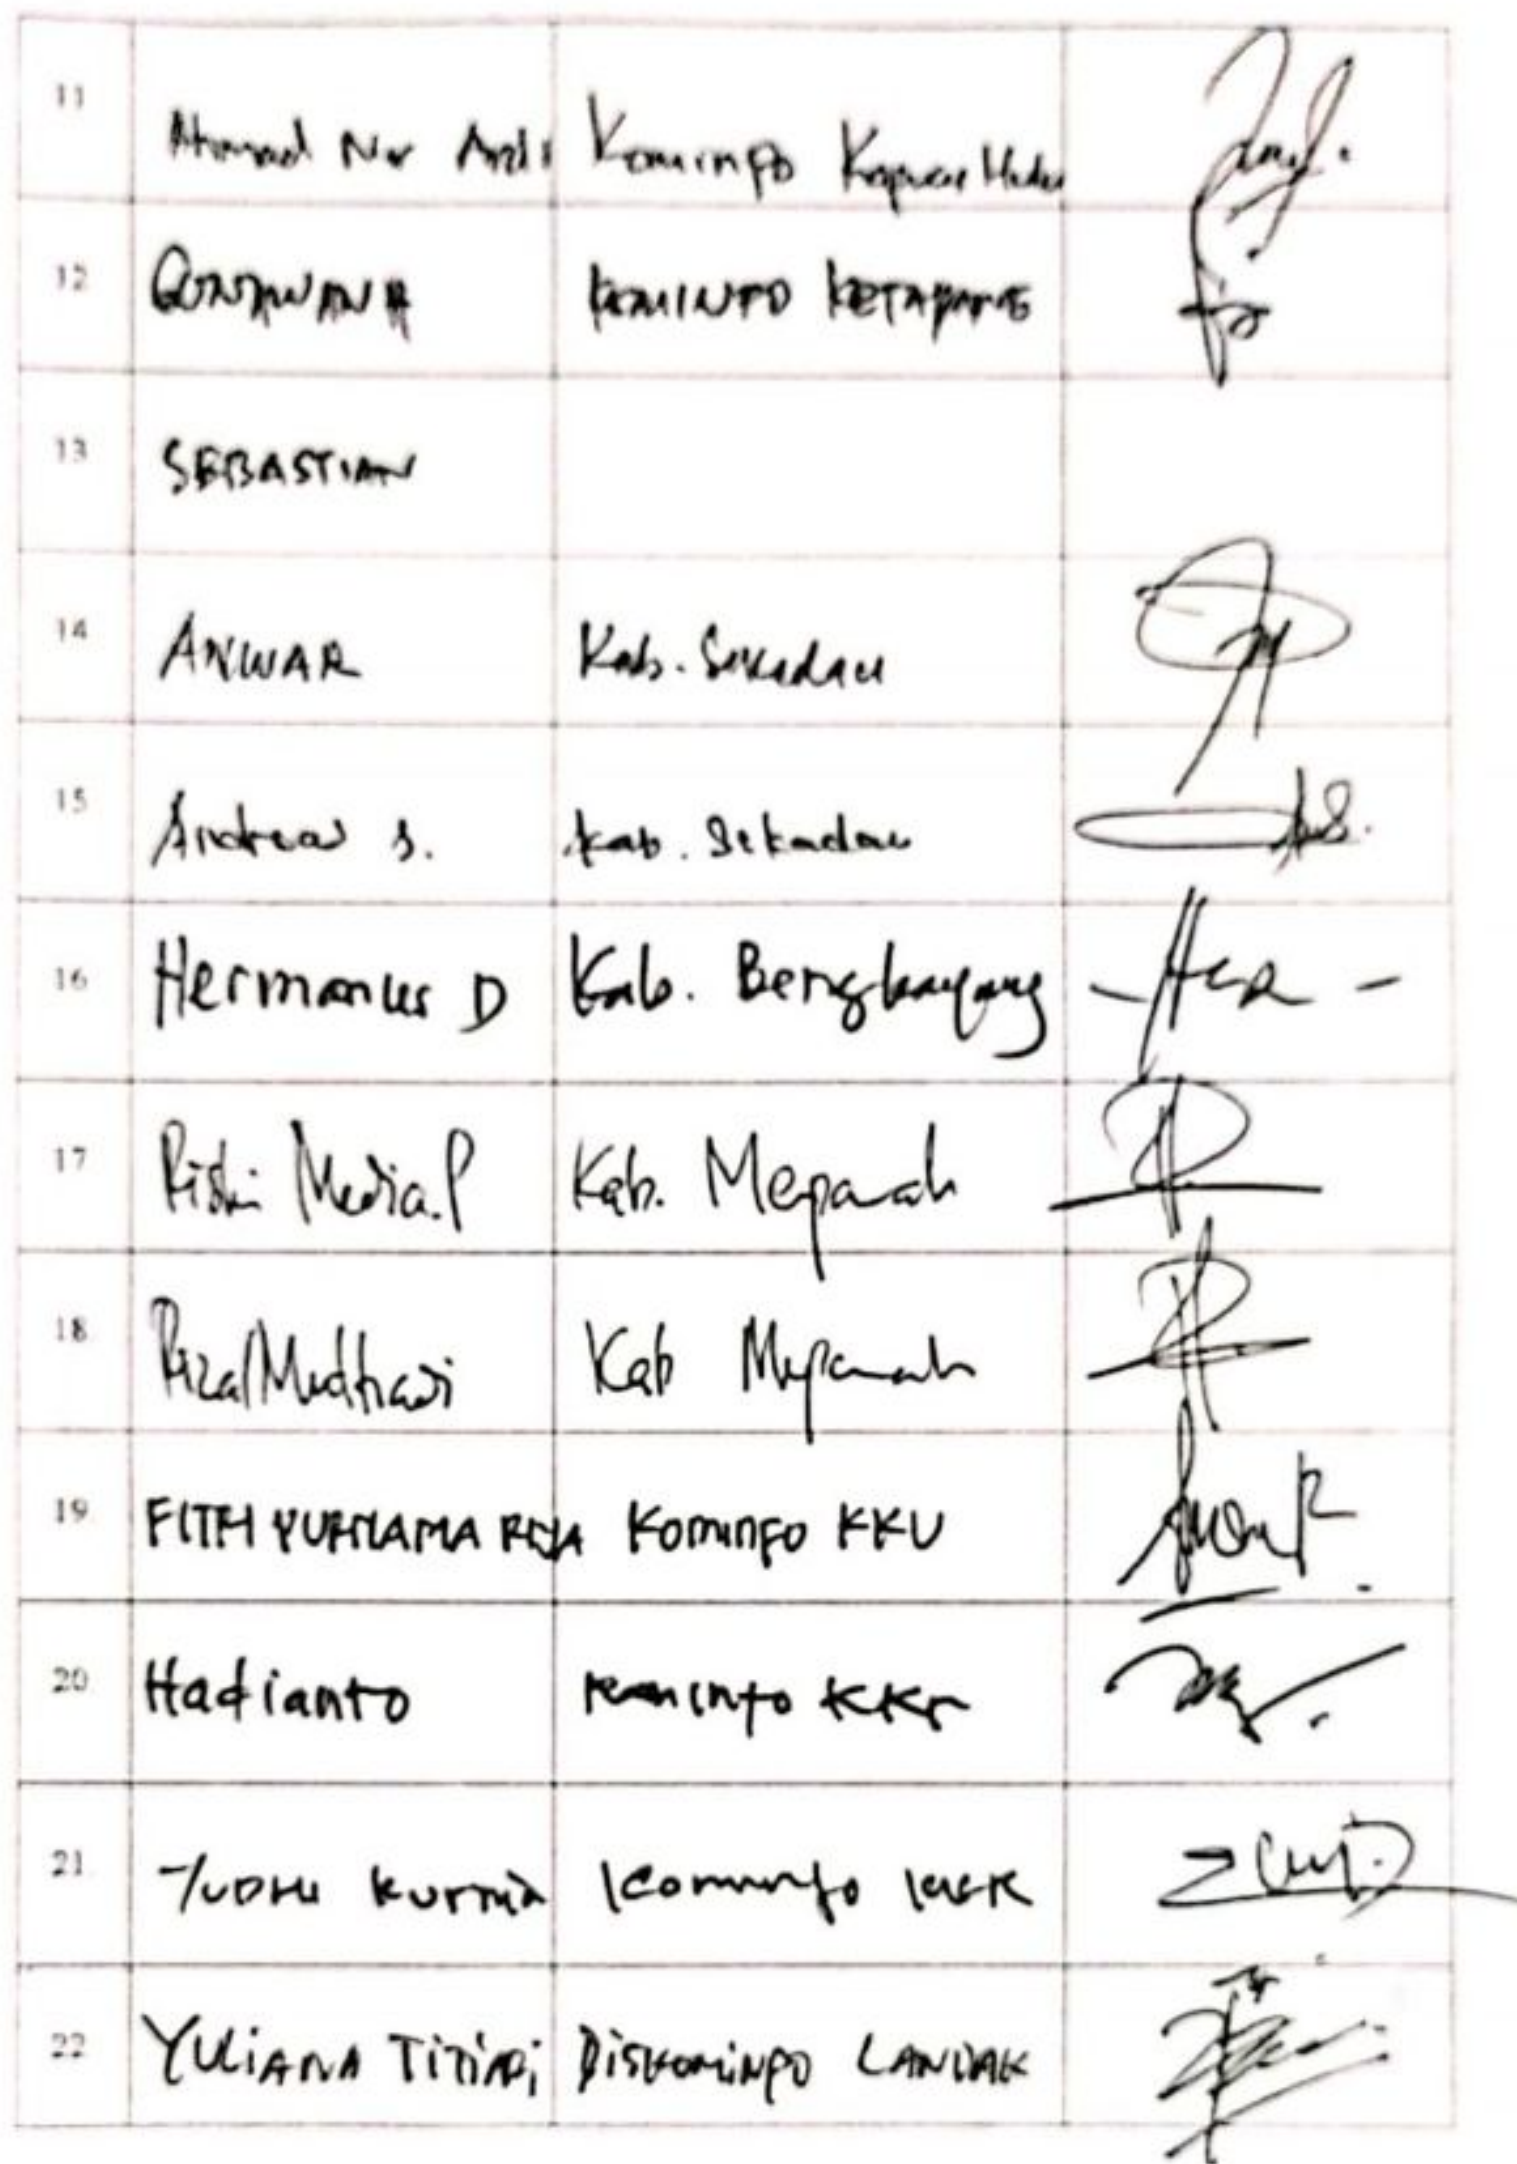 11 Ahmad Nur Ardi Kominfo Kapuas Hulu
12 GUNAWAN A KOMINFO KETAPANG
13 SEBASTIAN
14 ANWAR Kab. Sekadau
15 Andreas S. Kab. Sekadau
16 Hermanus D Kab. Bengkayang - Her -
17 Riski Media.P Kab. Mepawah
18 Rizal Mudhadi Kab Mepawah
19 FITRI YURNAMA Kominfo KKU
20 Hadianto Kominfo KKR
21 YUDHI Kurnia Kominfo KKR
22 YULiANA TiTiAri DiSKOMiNFO LANDAK